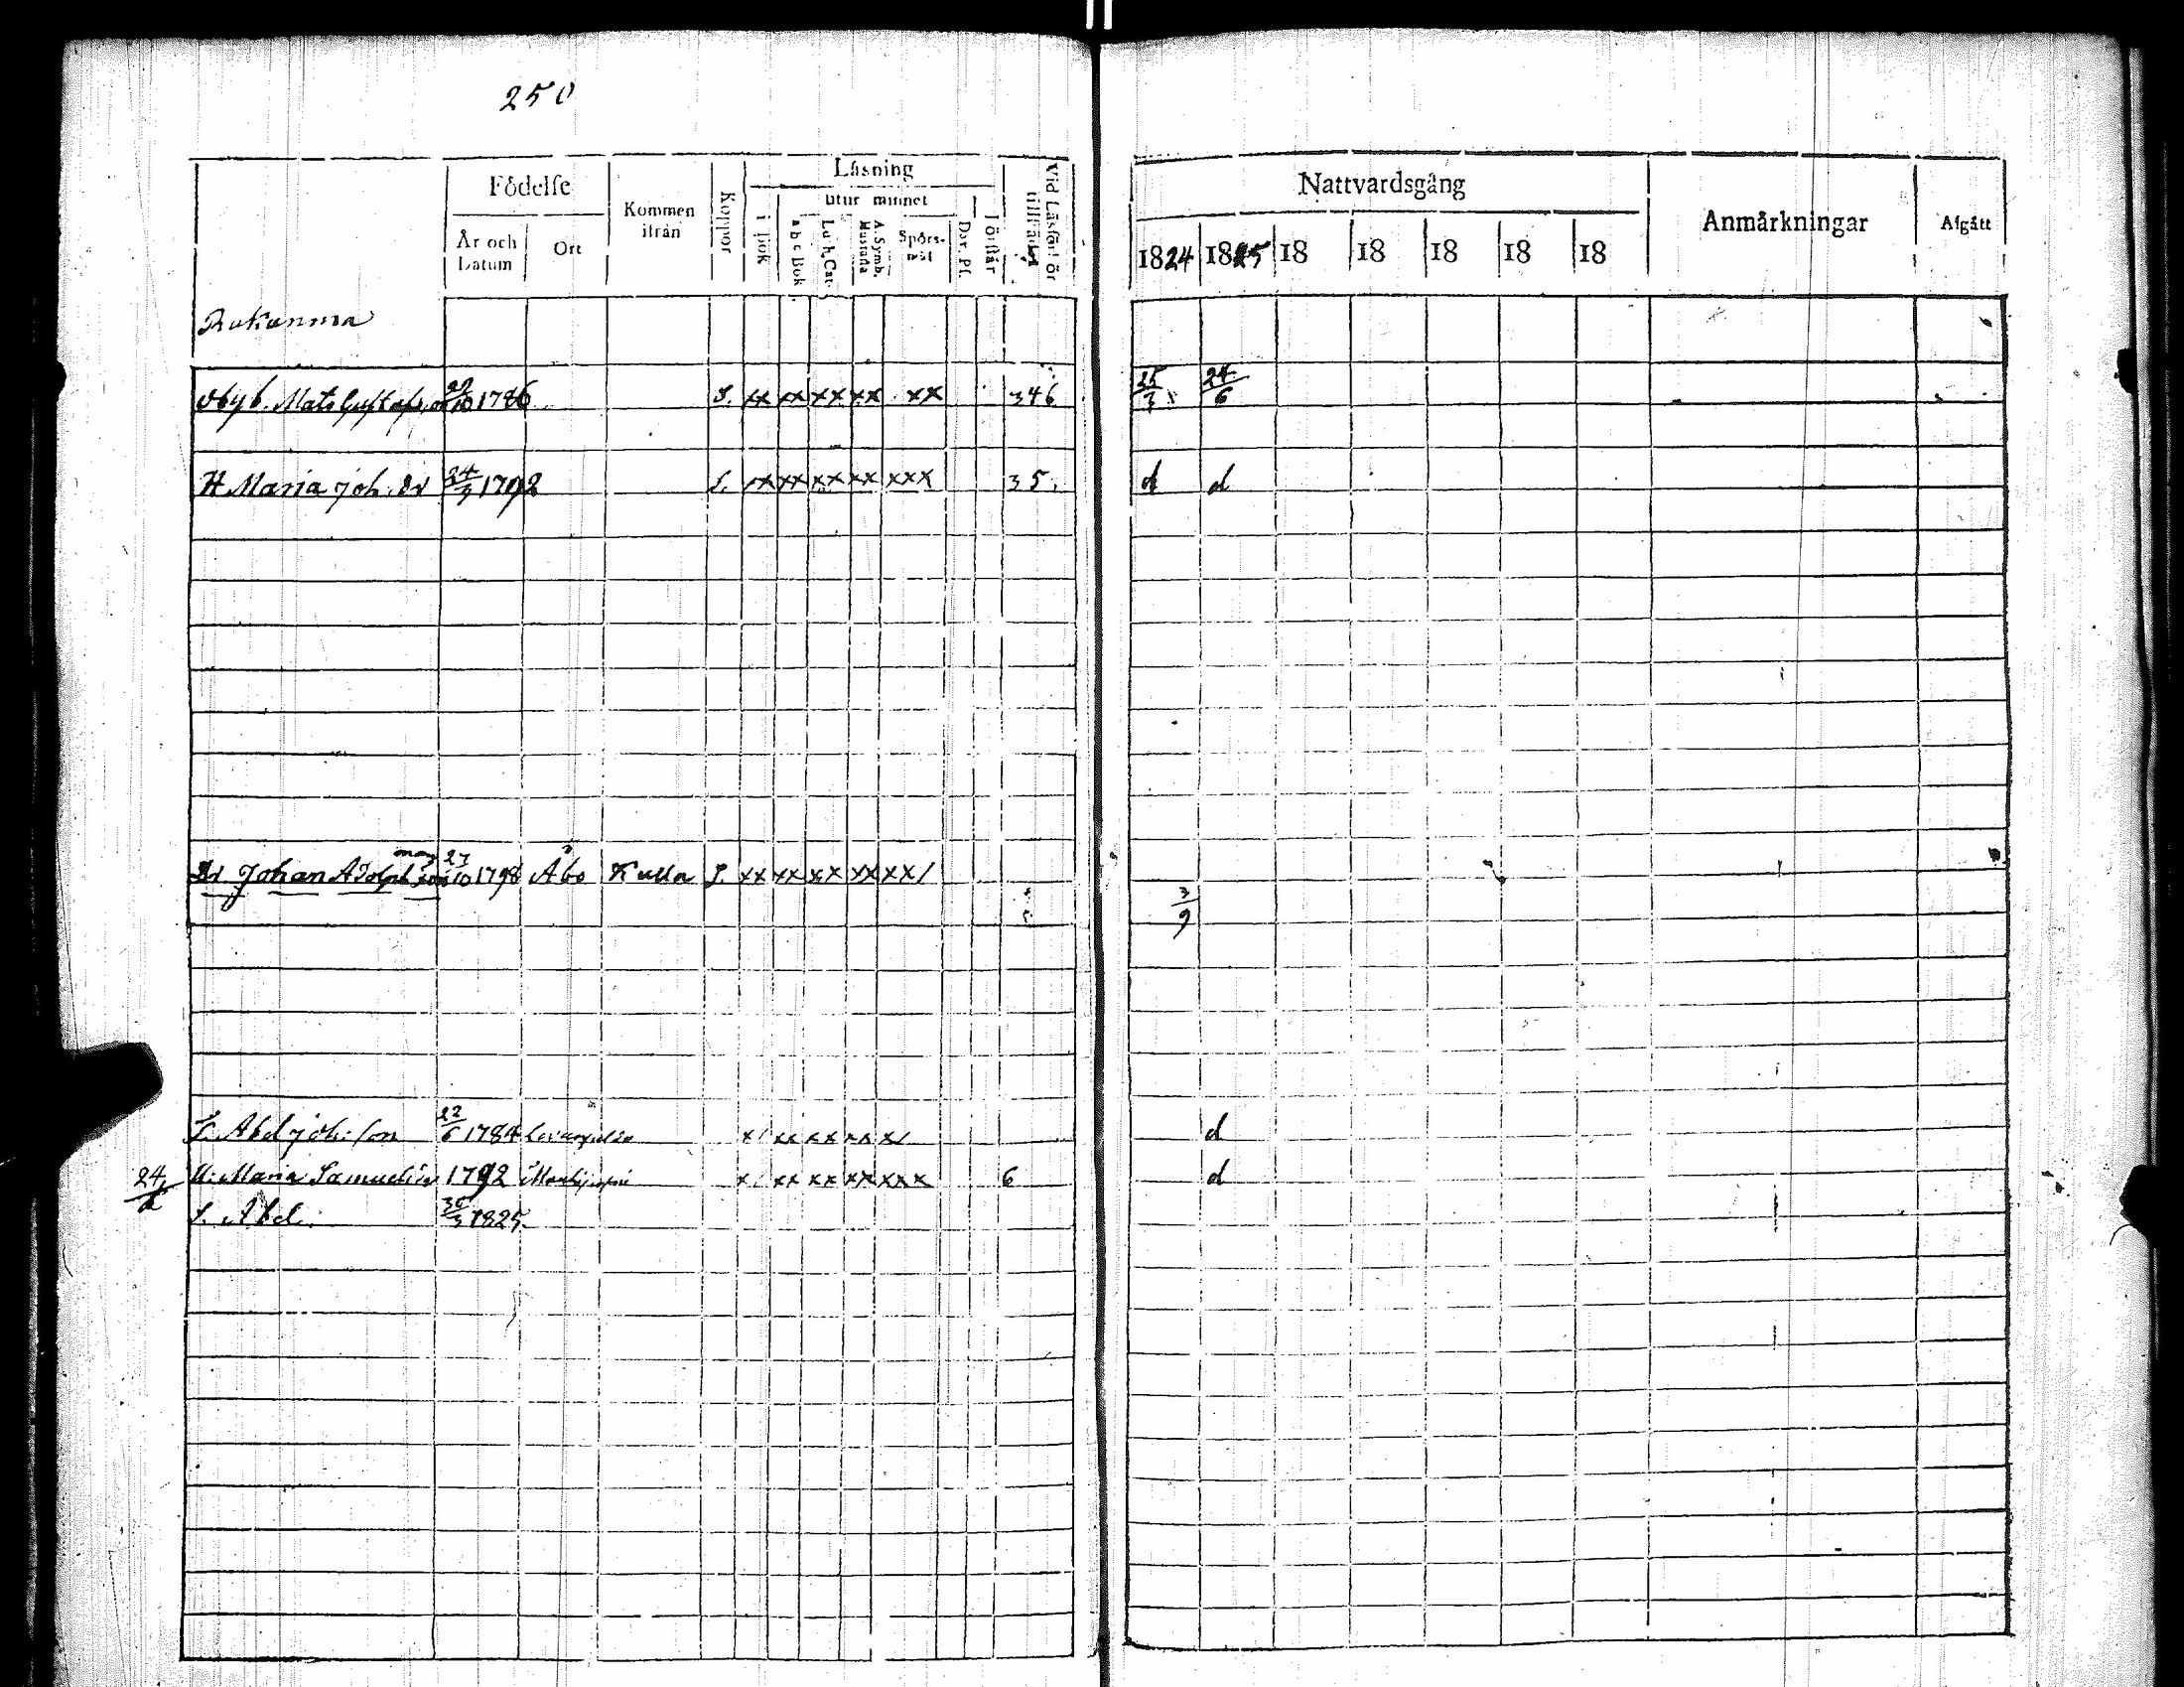 250
Födelse
År och Datum
Ort
Kommen ifrån
Koppor
Läsning
i bok
utur minnet
a b c Bok
Luth. Cat.
A. Symb. Hustafla
Spörsmål
Dav. Ps.
Förstår
Vid Läsförhör tillstädes
Nattvardsgång
1824 1825 18 18 18 18 18
Anmärkningar
Afgått
Rukanma
Mats 22/10 1786 S. xx xx xx xx xx 346 25/3 24/6
H. Maria Joh. Dr 24/3 1792 S. xx xx xx xx xxx 35. d d
Dr Johan Adolph son 27/10 1798 Åbo Kulla S. xx xx xx xx xx/
3/9
S. Abel Joh. son 22/6 1784 x/ xx xx xx x/ d
24/2 H. Maria Samuels dr 1792 x/ xx xx xx xxx 6 d
S. Abel. 30/3 1825.